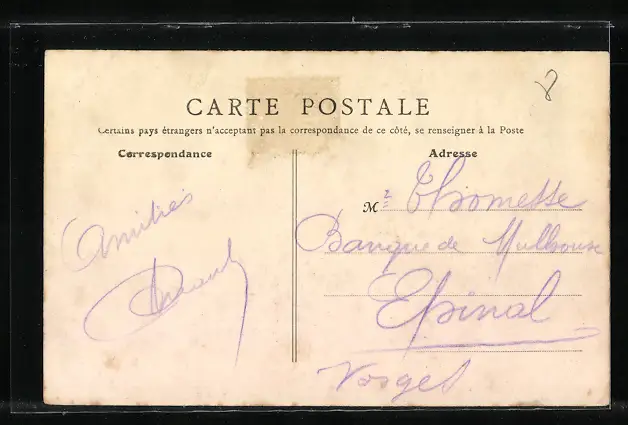 CARTE POSTALE
Certains pays étrangers n'acceptant pas la correspondance de ce côté, se renseigner à la Poste
Correspondance
Adresse
Amitiés
M Thomesse
Banque de Mulhouse
Epinal
Vosges